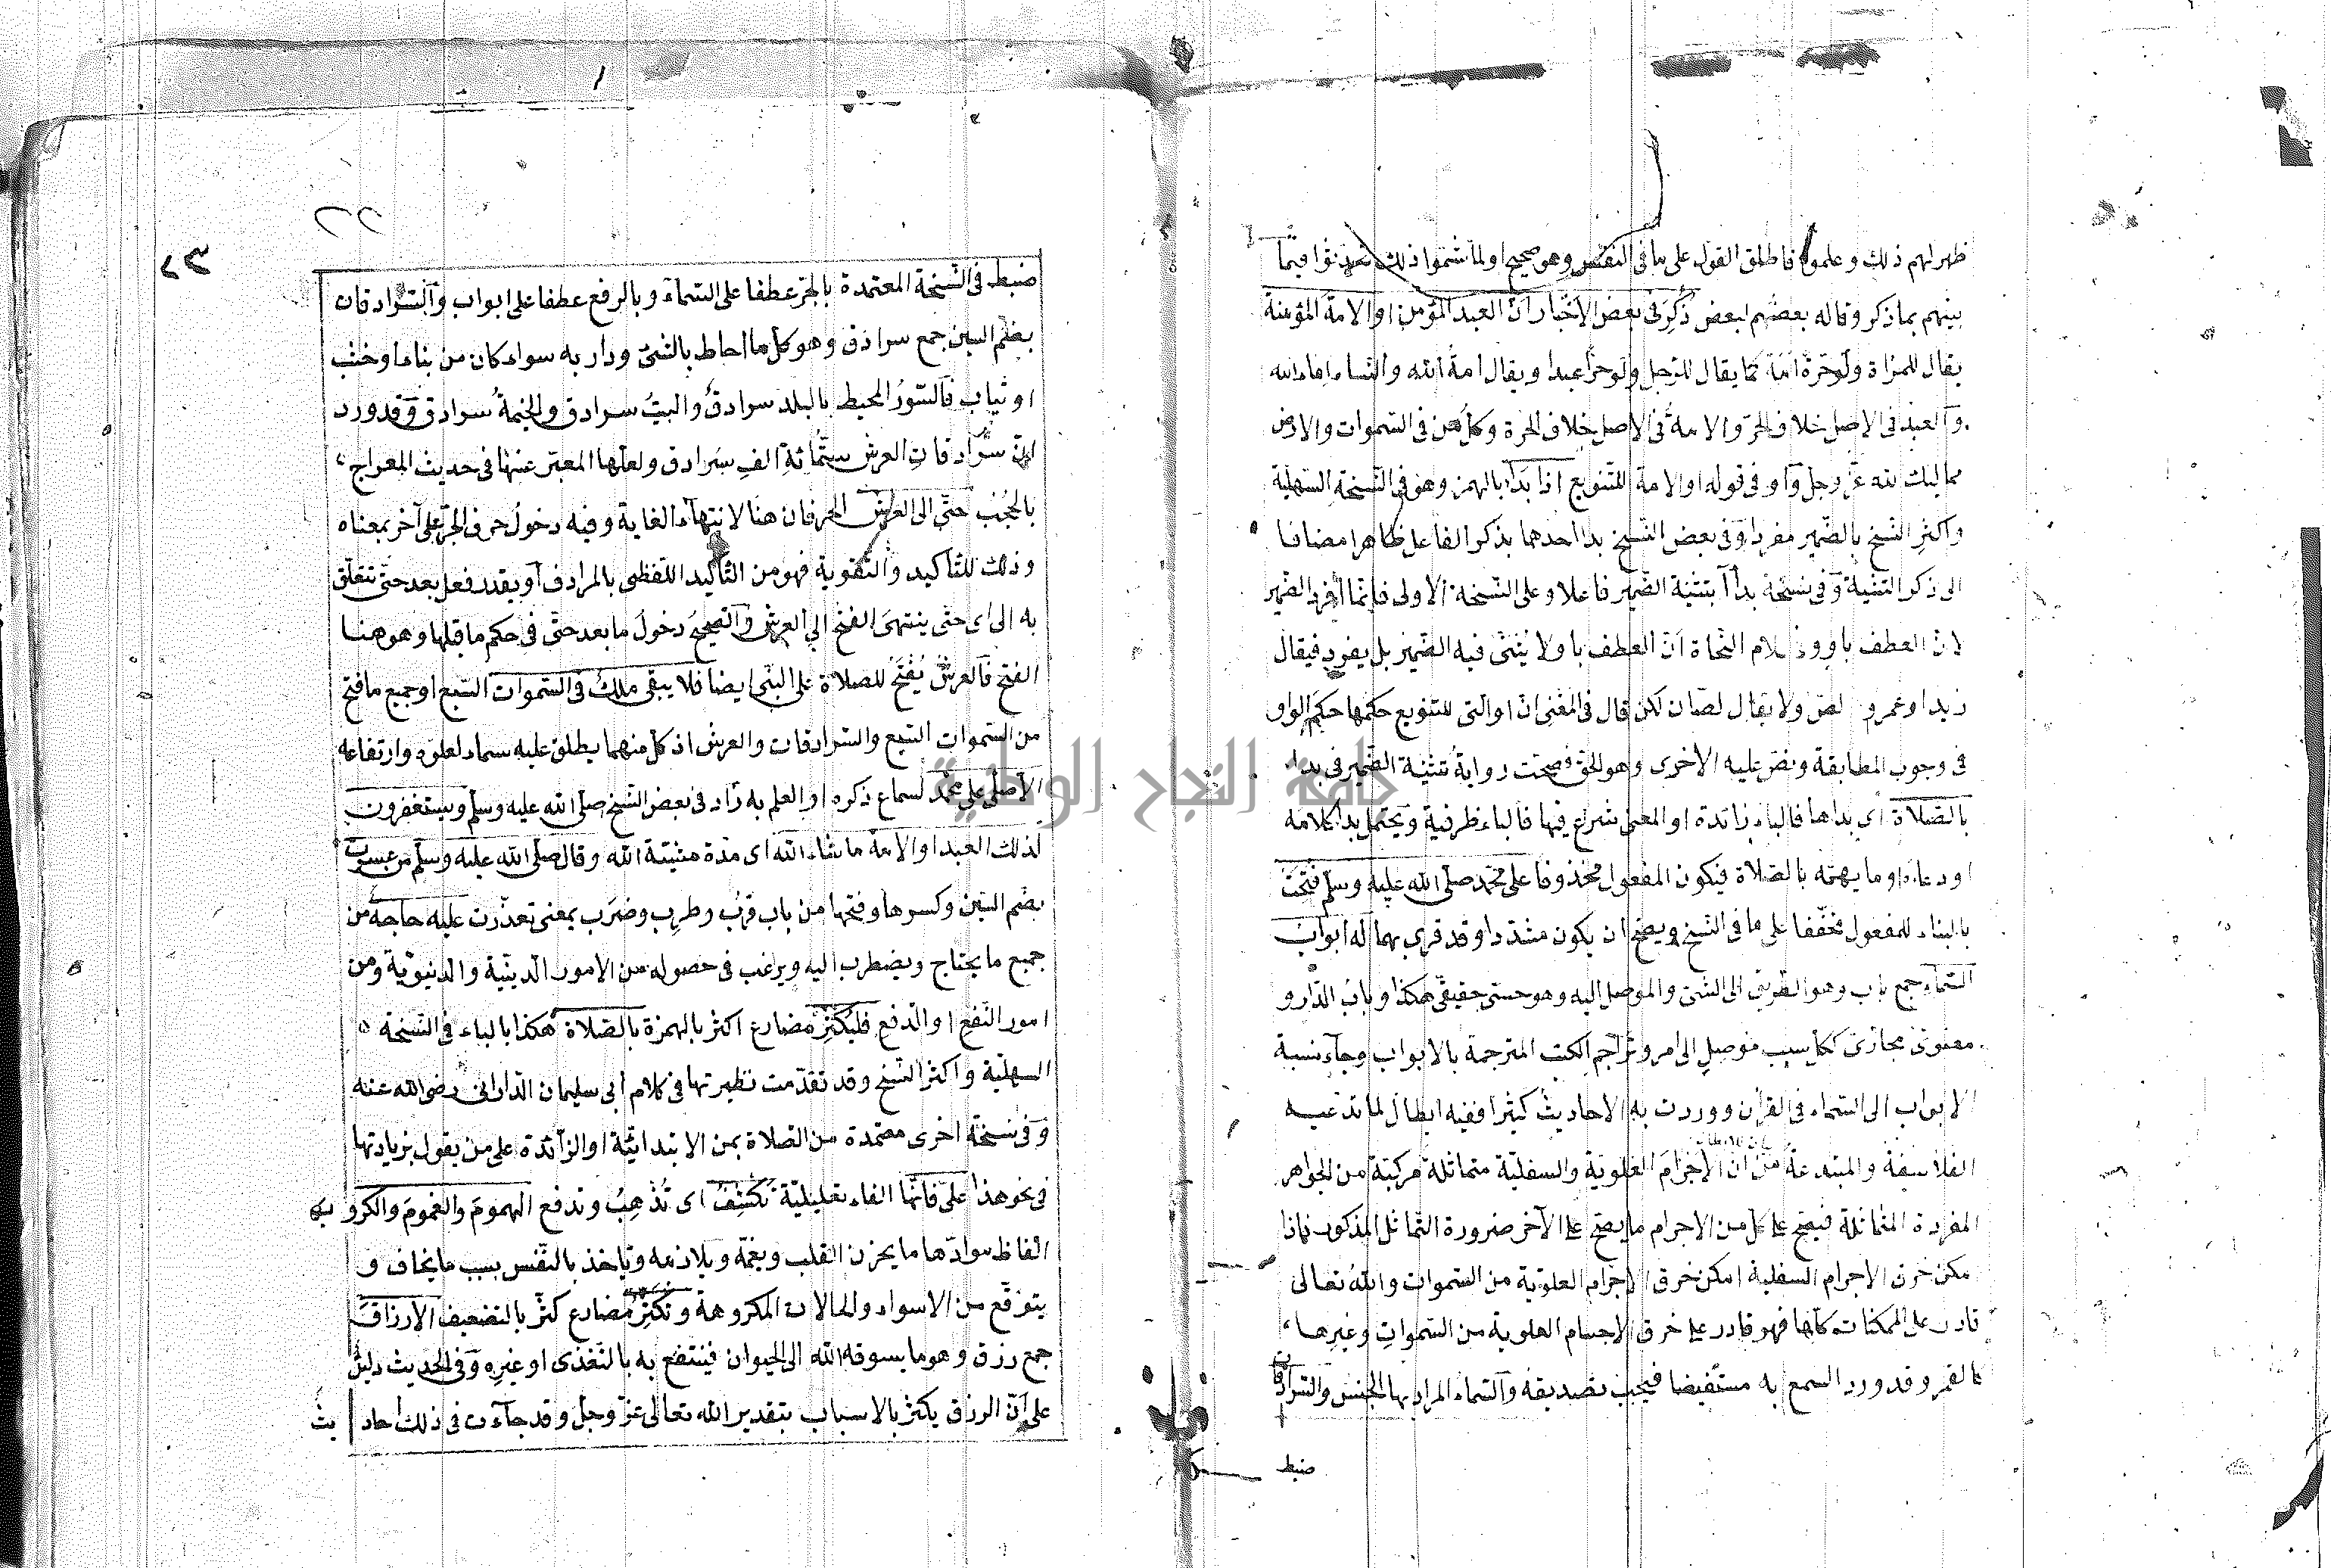 ظهر لهم ذلك وعلموه فاطلق القول على ما في النفس وهو صحيح او لما شموا ذلك تحدثوا فيما
بينهم بما ذكر وقاله بعضهم لبعض ذكر في بعض الأخبار أن العبد المؤمن او الامة المؤمنة
يقال للمراة ولو حرة امة كما يقال للرجل ولو حرا عبدا ويقال امة الله والنساء اماء الله
والعبد في الاصل خلاف الحر والامة في الاصل خلاف الحرة وكل من في السموات والارض
مماليك لله عز وجل وأو في قوله او الامة للتنويع اذا بدأ بالهمز وهو في النسخة السهلية
واكثر النسخ بالضمير مفردا وفي بعض النسخ بدا احدهما بذكر الفاعل ظاهرا مضافا
الى ذكر التثنية وفي نسخة بدأآ بتثنية الضمير فاعلا وعلى النسخة الاولى فانما أفرد الضمير
لان العطف باو و كلام النحاة أن العطف باو لا يثنى فيه الضمير بل يفرد فيقال
زيد او عمرو لص ولا يقال لصان لكن قال في المغني ان او التي للتنويع حكمها حكم الواو
في وجوب المطابقة ونص عليه الاخرى وهو الحق فصحت رواية تثنية الضمير في بدا
بالصلاة اي بداها فالباء زائدة او المعنى شرع فيها فالباء ظرفية ويحتمل بدا كلامه
او دعاءه او ما يهمه بالصلاة فيكون المفعول محذوفا على محمد صلى الله عليه وسلم فتحت
بالبناء للمفعول مخففا على ما في النسخ ويصح ان يكون مشددا وقد قرئ بهما له أبواب
السماء جمع باب وهو الطريق الى الشئ والموصل اليه وهو حسي حقيقي هكذا وباب الدار و
معنوي مجازي ككل سبب موصل الى امر وتراجم الكتب المترجمة بالابواب وجاء نسبة
الابواب الى السماء في القرأن ووردت به الاحاديث كثيرا ففيه ابطال لما تدعيه
الفلاسفة والمبتدعة من ان الاجرام العلوية والسفلية متماثلة مركبة من الجواهر
المفردة المتماثلة فيصح على كل من الاجرام ما يصح على الآخر ضرورة التماثل المذكور فاذا
مكن خرق الاجرام السفلية امكن خرق الاجرام العلوية من السموات والله تعالى
قادر على الممكنات كلها فهو قادر على خرق الاجسام العلوية من السموات وغيرها
كالقمر وقد ورد السمع به مستفيضا فيجب تصديقه والسماء المراد بها الجنس والسرادقات
ضبط
٢٢
ضبط في النسخة المعتمدة بالجر عطفا على السماء وبالرفع عطفا على ابواب والسرادقات
بضم السين جمع سرادق وهو كل ما احاط بالشئ ودار به سواء كان من بناء او خشب
او ثياب فالسور المحيط بالبلد سرادق والبيت سرادق والخيمة سرادق وقد ورد
ان سرادقات العرش ستمائة الف سرادق ولعلها المعبر عنها في حديث المعراج
بالحجب حتى الى العرش الحرفان هنا لانتهاء الغاية وفيه دخول حرف الجر على آخر بمعناه
وذلك للتأكيد والتقوية فهو من التأكيد اللفظي بالمرادف أو يقدر فعل بعد حتى تتعلق
به الى اي حتى ينتهي الفتح الى العرش والصحيح دخول ما بعد حتى في حكم ما قبلها وهو هنا
الفتح فالعرش يفتح للصلاة على النبي ايضا فلا يبقى ملك في السموات السبع او جميع ما فتح
من السموات السبع والسرادقات والعرش اذ كل منهما يطلق عليه سماء لعلوه وارتفاعه
الاصلى على محمد لسماع ذكره او العلم به زاد في بعض النسخ صلى الله عليه وسلم ويستغفرون
لذلك العبد او الامة ما شاء الله اي مدة مشيئة الله وقال صلى الله عليه وسلم من عسرت
بضم السين وكسرها وفتحها من باب قرب وطرب وضرب بمعنى تعذرت عليه حاجة من
جميع ما يحتاج ويضطرب اليه ويرغب في حصوله من الامور الدينية والدنيوية ومن
امور النفع او الدفع فليكثر مضارع اكثر بالهمزة بالصلاة هكذا بالباء في النسخة
السهلية واكثر النسخ وقد تقدمت نظيرتها في كلام أبي سليمان الداراني رضى الله عنه
وفي نسخة اخرى معتمدة من الصلاة بمن الابتدائية او الزائدة على من يقول بزيادتها
في نحو هذا علي فانها الفاء تعليلية تكشف اي تذهب وتدفع الهموم والغموم والكروب
الفاظ موادها ما يحزن القلب ويغمه ويلازمه وياخذ بالنفس بسبب ما يخاف و
يتوقع من الاسواء والحالات المكروهة وتكثر مضارع كثر بالتضعيف الارزاق
جمع رزق وهو ما يسوقه الله الى الحيوان فينتفع به بالتغذى او غيره وفي الحديث دليل
على أن الرزق يكثر بالاسباب بتقدير الله تعالى عز وجل وقد جآءت في ذلك احاديث
جامعة النجاح الوطنية